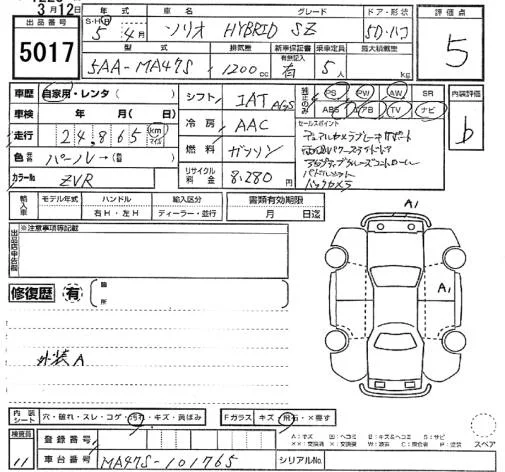 3月12日
出品番号
5017
年式 車名 グレード ドア・形状
S・H 5年 4月 ソリオ HYBRID SZ 5D.ハコ
型式 排気量 新車保証書 乗車定員 最大積載量
有無記入
5AA-MA47S 1200cc 有 5人 kg
評価点
5
車歴 自家用・レンタ( )
車検 年 月( 日)
走行 24,865 km マイル
色 パープル→(
カラーNo ZVR
シフト IAT
冷房 AAC
燃料 ガソリン
リサイクル料金 8,280円
純正のみ
PS PW AW SR
ABS エアB TV ナビ
セールスポイント
デュアルカメラブレーキサポート
両側パワースライドドア
アダプティブクルーズコントロール
パドルシフト
バックカメラ
内装評価
b
輸入車 モデル年式 ハンドル 輸入区分
年 右H・左H ディーラー・並行
書類有効期限
月 日迄
出品店申告欄
※注意事項等記載
修復歴 有 箇所
A1
A1
外装A
内装シート 穴・破れ・スレ・コゲ・汚れ・キズ・黄ばみ
Fガラス キズ・飛石・×要す
検査員
11
登録番号
車台番号 MA47S-101765
シリアルNo.
A:キズ U:ヘコミ B:キズ&ヘコミ S:サビ
スペア